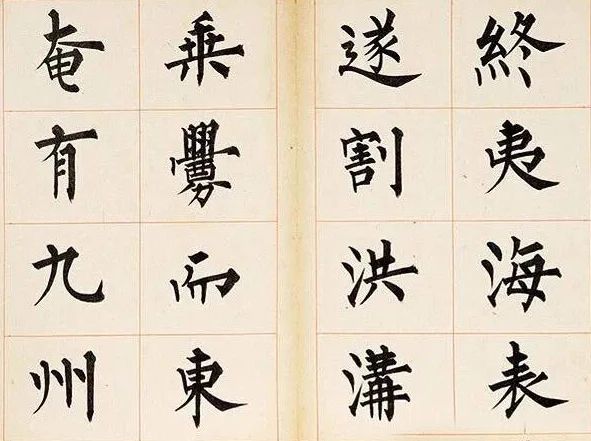 終夷海表
遂割洪溝
乗釁而東
奄有九州